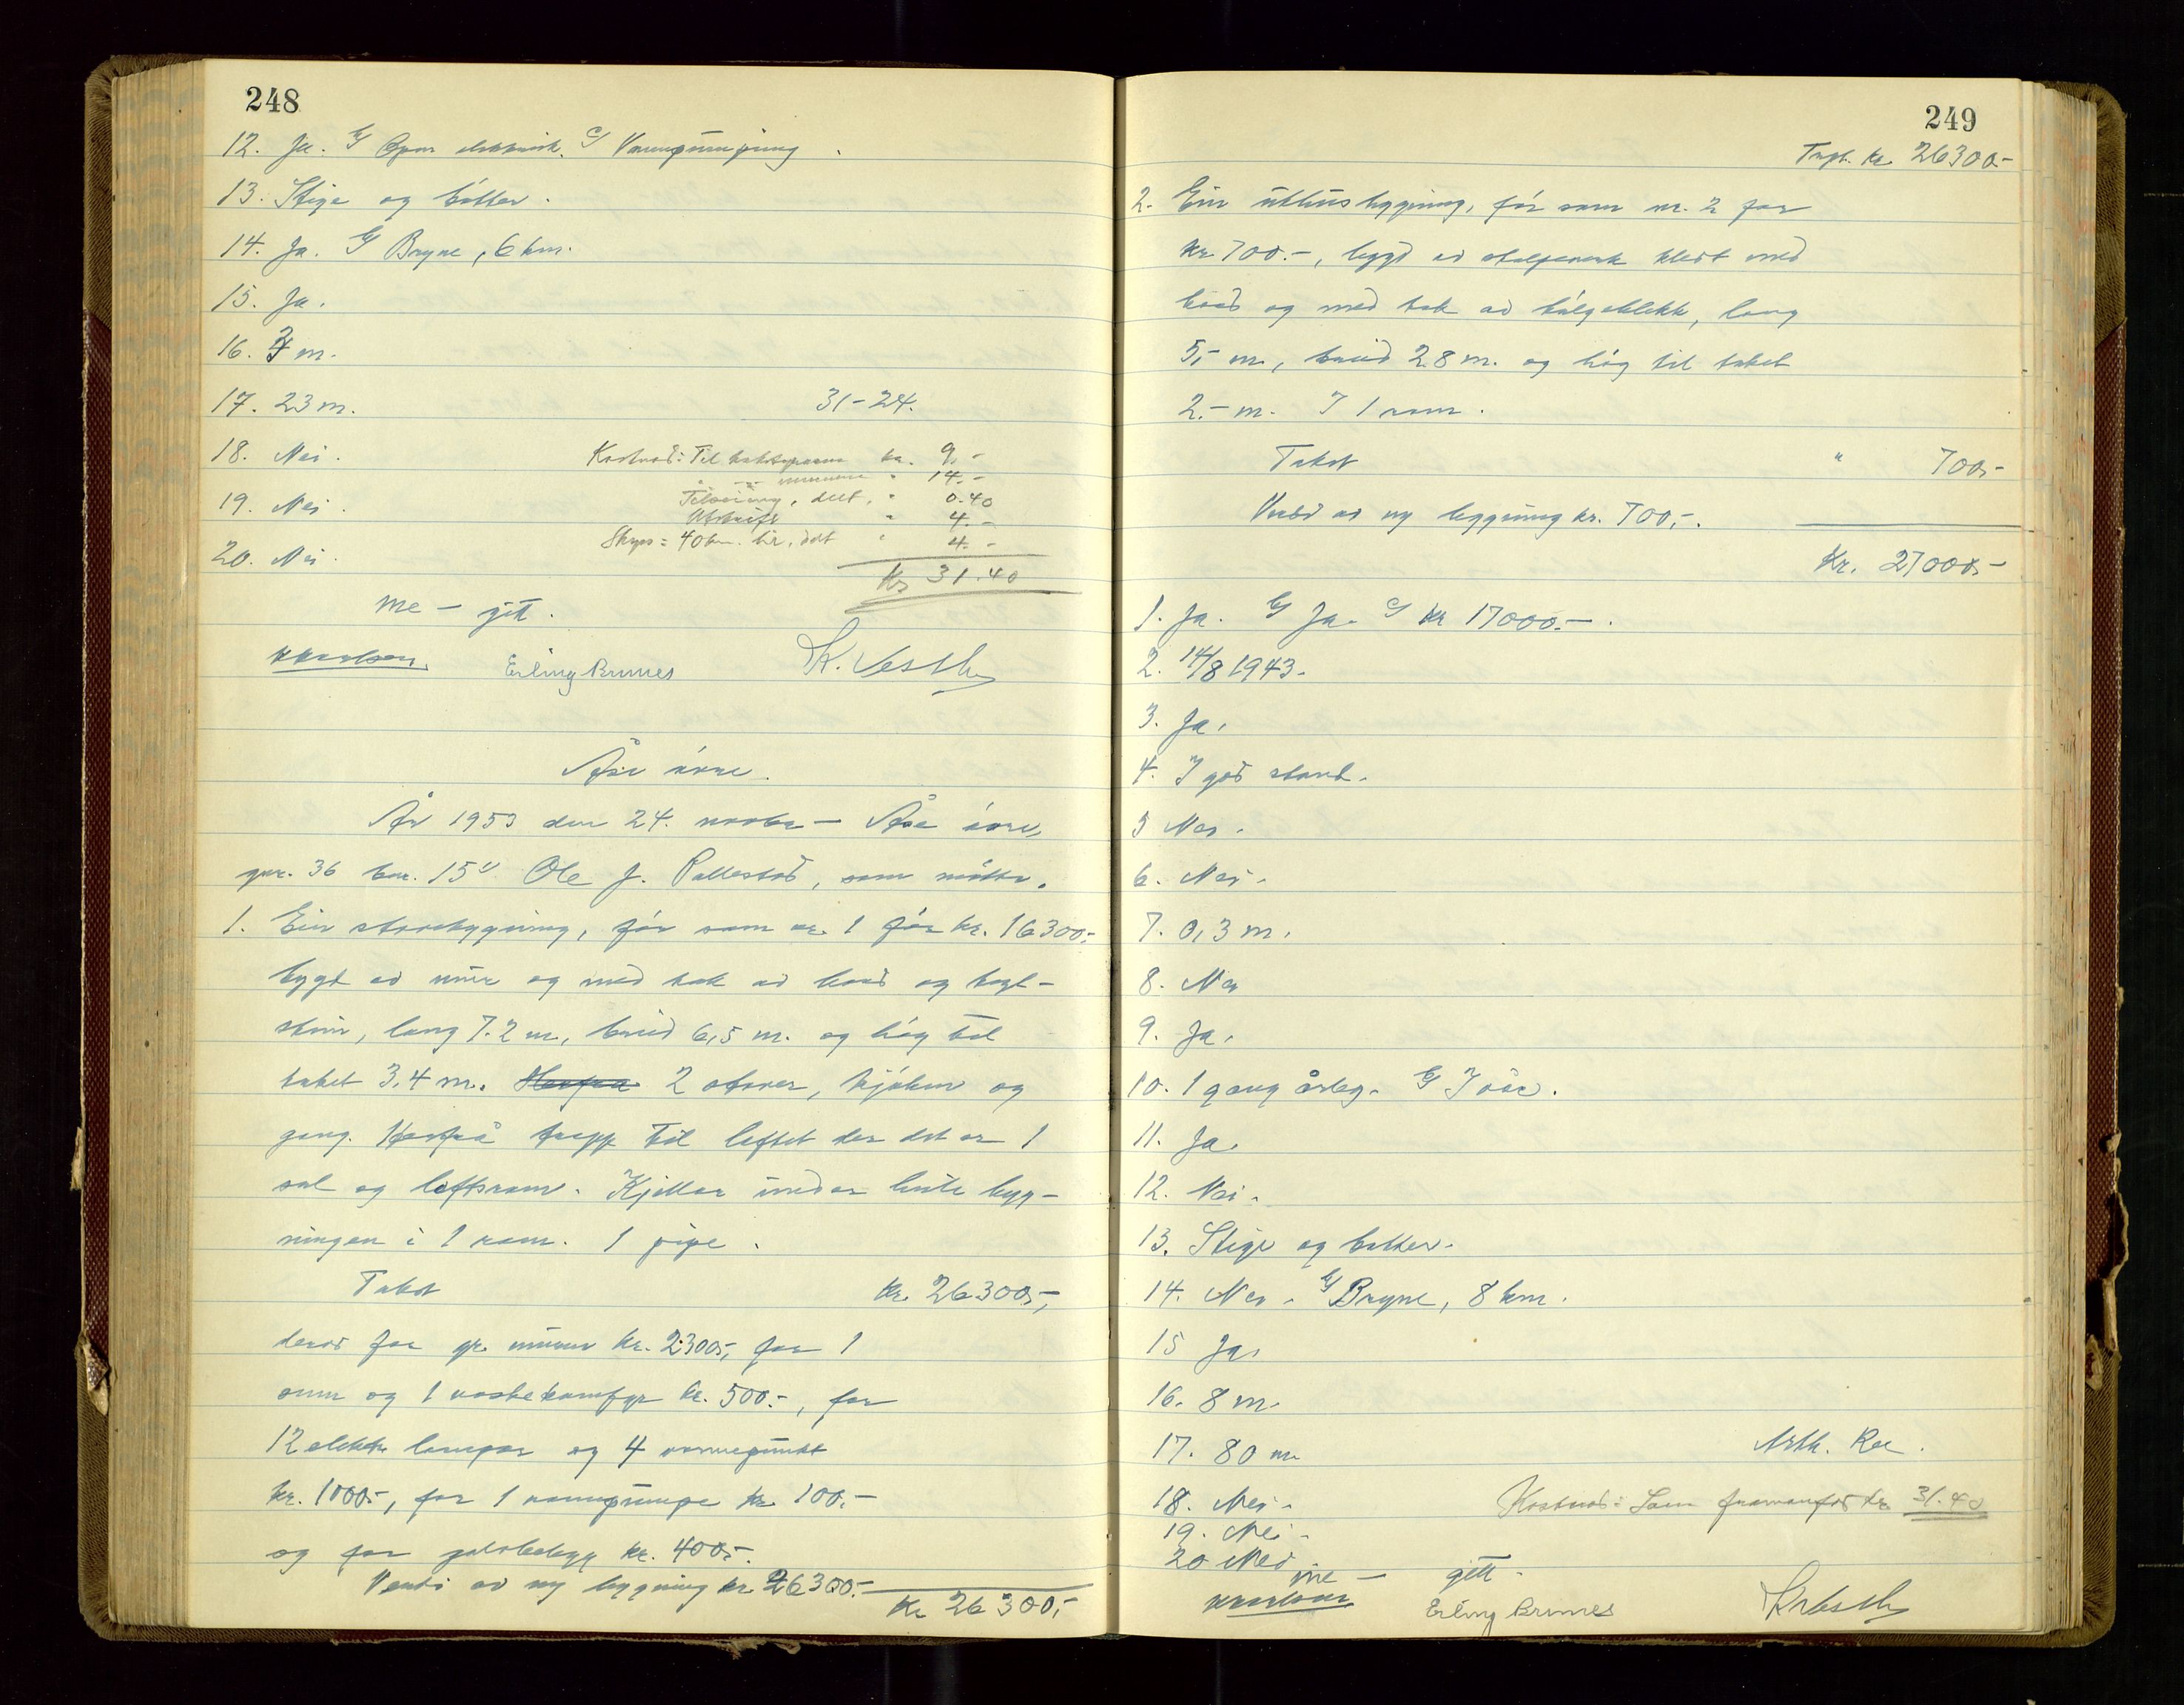 248
12. Ja. G Open elektrisk. G Vannpumping.
13. Stige og bötter.
14. Ja. G Bryne, 6 km.
15. Ja.
16. m.
17. 23 m. 31-24.
18. Nei. Kostnad: Til takstmennene kr. 9.-
" " " 14.-
19. Nei. Tilsening, delt, " 0.40
Utskrift " 4.-
20. Nei. Skyss: 40 km. bil, delt " 4.-
Kr 31.40
me - gitt.
Erling Brunes K. Vestly
Åse övre.
År 1953 den 24. novbr - Åse övre,
gnr. 36 bnr. 15 Ole J. Pollestad, som mötte.
1. Ein stovebygning, för som nr. 1 för kr. 16300,-
bygd av mur og med tak av bord og tegl-
stein, lang 7.2 m, breid 6,5 m. og hög til
taket 3,4 m. Herfra 2 stover, kjöken og
gang. Herfrå trapp til loftet der det er 1
sal og loftsrom. Kjellar under heile byg-
ningen i 1 rom. 1 pipe.
Takst kr. 26300,-,
derav for gr. muren kr. 2300,-, for 1
omn og 1 vaskekomfyr kr. 500.-, for
12 elektr. lamper og 4 varmepunkt
kr. 1000,-, for 1 vannpumpe kr. 100.-
og for golvbelegg kr. 400,-.
Verdi av ny bygning kr 26300.-
Kr 26300,-
249
Trsp. kr 26300.-
2. Ein uthusbygning, för som nr. 2 for
kr. 700.-, bygd av stolpeverk kledt med
bord og med tak av bölgeblikk, lang
5,- m, breid 2.8 m. og hög til taket
2.- m. I 1 rom.
Takst " 700,-
Verdi av ny bygning kr. 700,-.
Kr. 27000,-
1. Ja. G Ja. G kr 17000.-.
2. 14/8 1943.
3. Ja.
4. I god stand.
5 Nei.
6. Nei.
7. 0,3 m.
8. Nei
9. Ja.
10. 1 gang årleg. G I åse.
11. Ja.
12. Nei.
13. Stige og bötter.
14. Nei. G Bryne, 8 km.
15 Ja.
16. 8 m.
17. 80 m. Arth. Roe.
18. Nei. Kostnad: Som framanfor kr 31.40
19. Nei.
20 Nei
me - gitt.
Erling Brunes K Vestly